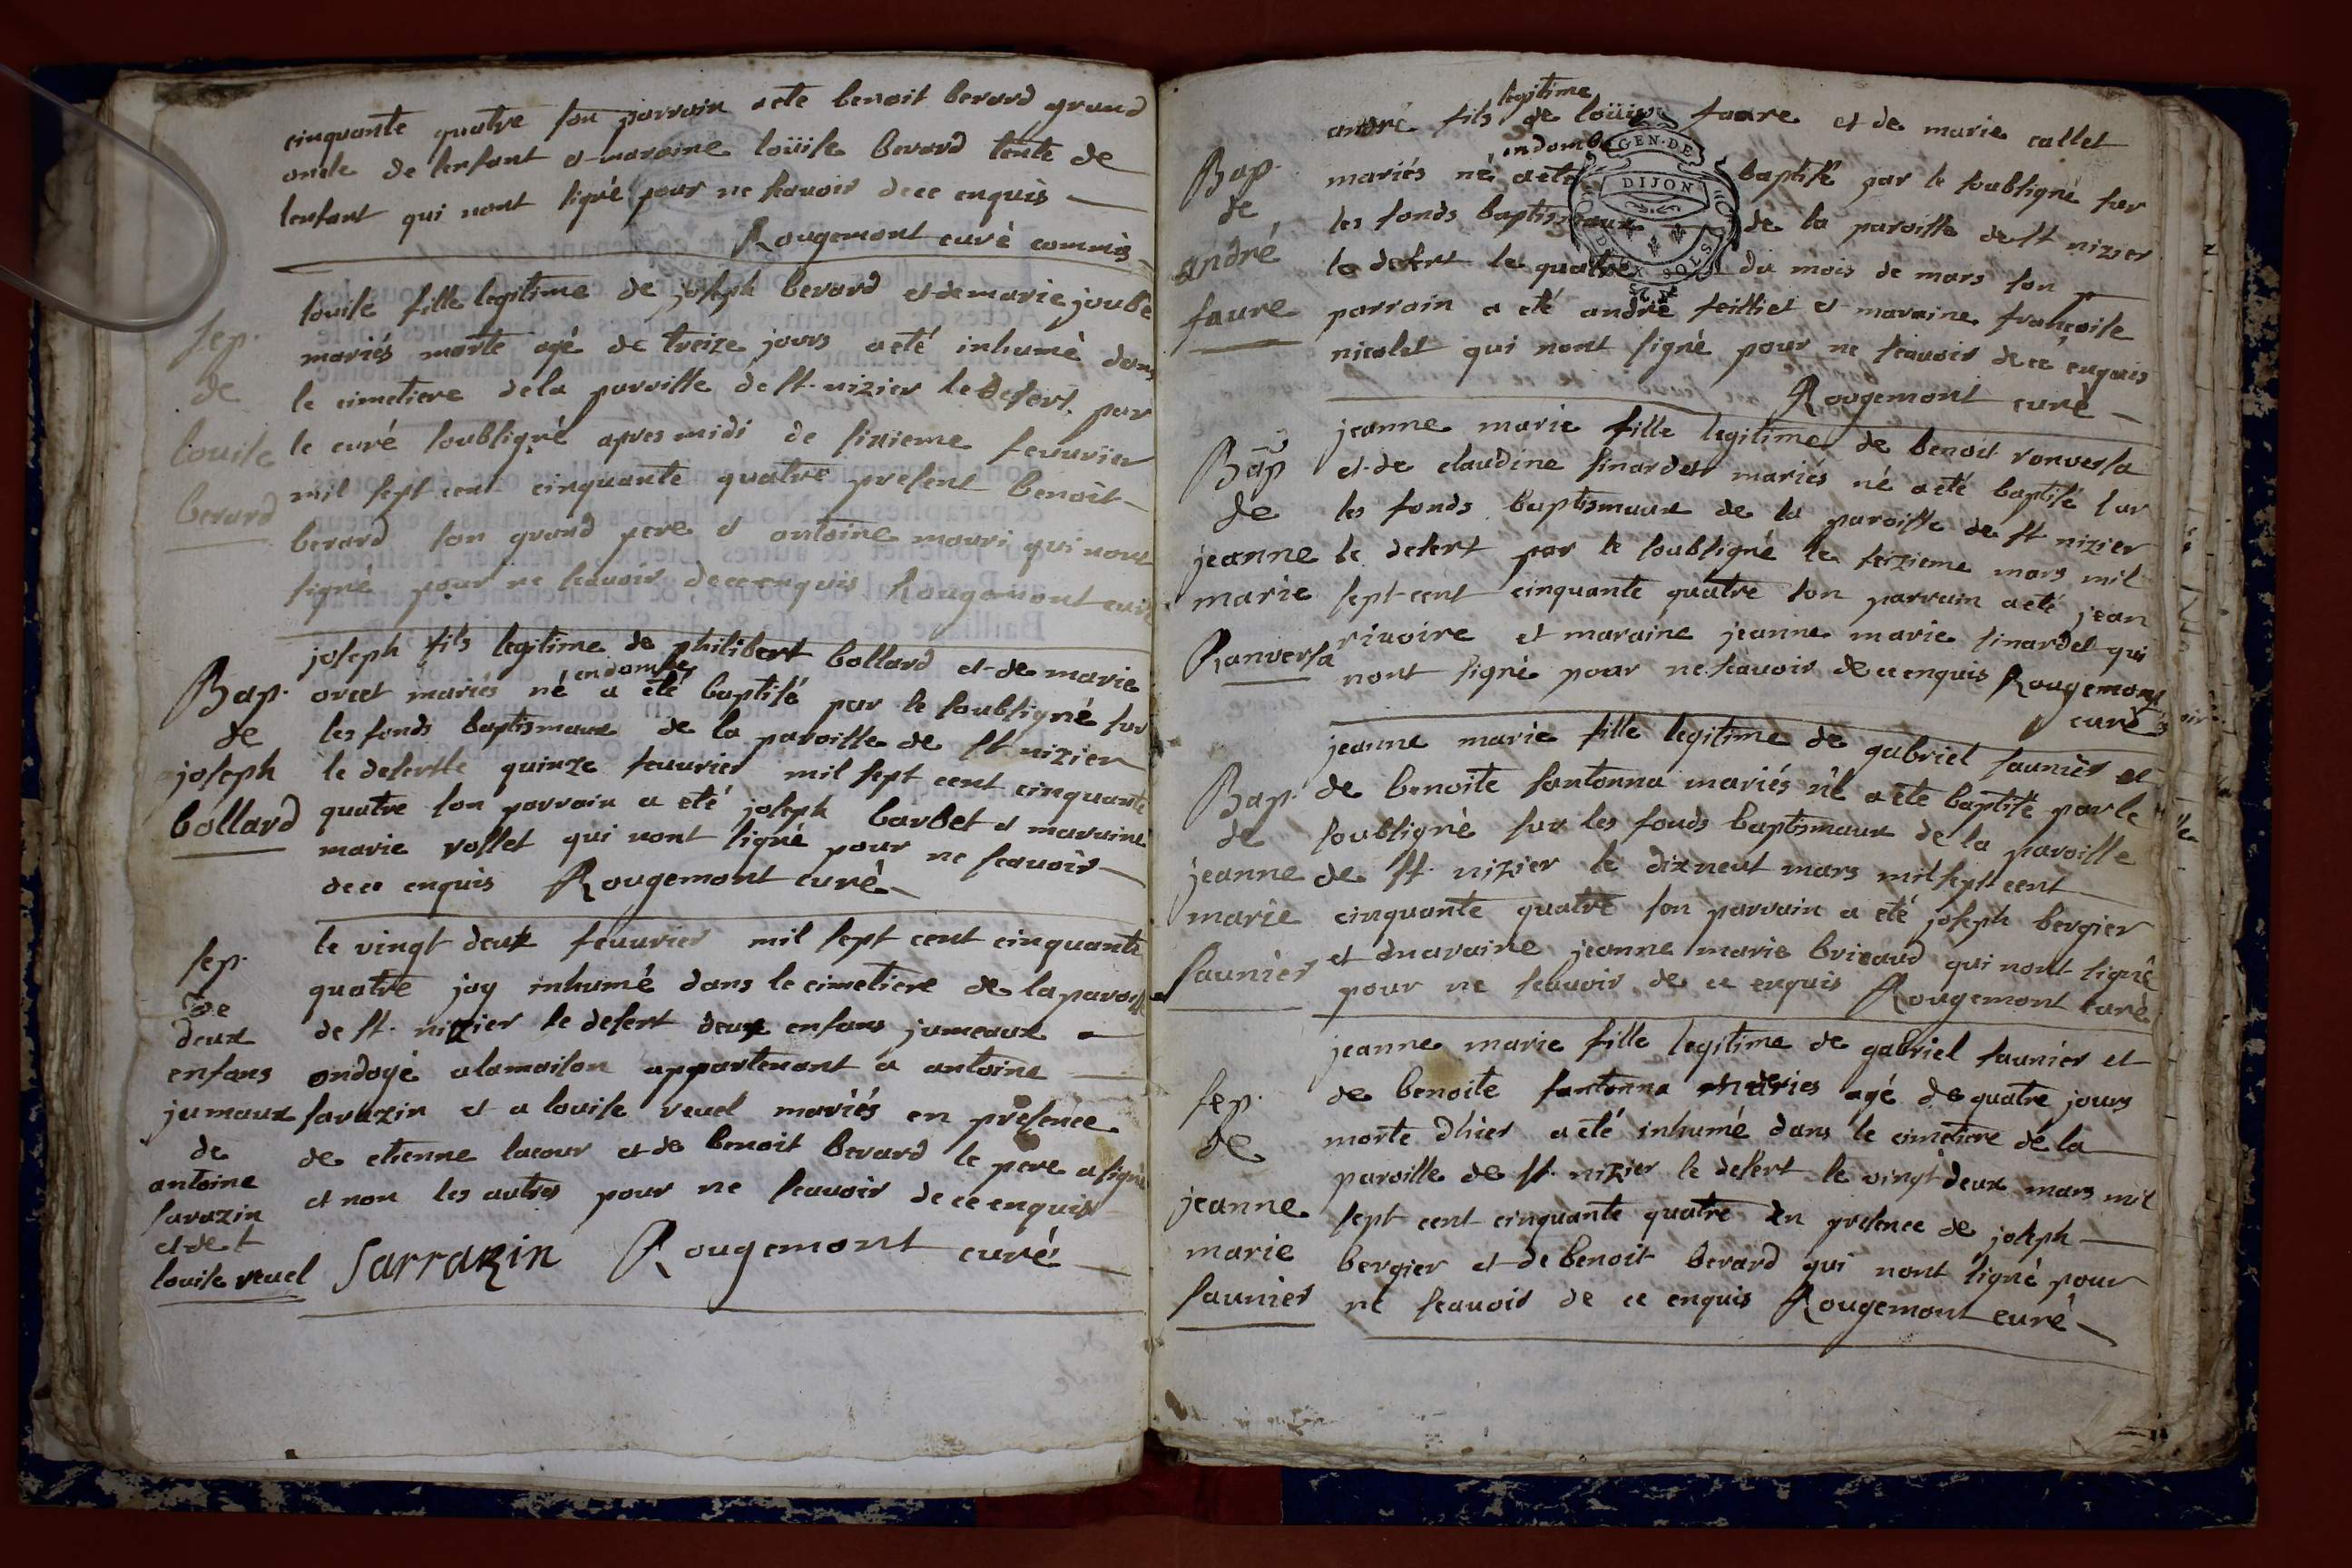 cinquante quatre son parrain aeté benoit berard grand
oncle de lenfant et maraine loüise berard tente de
lenfant qui nont signé pour ne scavoir dece enquis
Rougemont curé commis
sep.
de
louise
berard
louise fille legitime de joseph berard et de marie joubé
mariés morte agé de treize jours aeté inhumé dans
le cimetiere dela paroisse de st. nizier le desert par
le curé soubsigné apres midi de sixieme feuurier
mil sept cent cinquante quatre present benoit
berard son grand pere et antoine mouri qui nont
signé pour ne scavoir dece enquis Rougemont curé
Bap.
de
joseph
bollard
joseph fils legitime de philibert bollard et de marie
endombes
orcet mariés né a eté baptisé par le soubsigné sur
les fonds baptismaux de la paroisse de st nizier
le desert le quinze feuurier mil sept cent cinquante
quatre son parrain a eté joseph barbet et maraine
marie rosset qui nont signé pour ne scavoir
dece enquis Rougemont curé
sep.
de
deux
enfans
jumaux
de
antoine
sarazin
et de
louise veuel
le vingt deux feuurier mil sept cent cinquante
quatre jay inhumé dans le cimetiere de la paroisse
de st. nizier le desert deux enfans jumeaux
ondoyé alamaison appartenant a antoine
sarazin et a louise veuel mariés en presence
de etienne lacour et de benoit berard le pere a signé
et non les autres pour ne scavoir de ce enquis
Sarrazin Rougemont curé
Bap.
de
andré
faure
legitime
andré fils de loüis faure et de marie callet
endombes
mariés né aeté baptisé par le soubsigné sur
les fonds baptismaux de la paroisse de st nizier
le desert le quatre du mois de mars son
parrain a eté andré feilliet et maraine françoise
nicolet qui nont signé pour ne scavoir de ce enquis
Rougemont curé
GEN. DE
DIJON
DEUX SOLS
Bap
de
jeanne
marie
Ranversa
jeanne marie fille legitime de benoit ronversa
et de claudine sinardet mariés né aeté baptisé sur
les fonds baptismaux de la paroisse de st nizier
le desert par le soubsigné le seizieme mars mil
sept cent cinquante quatre son parrain aeté jean
rivoire et maraine jeanne marie sinardet qui
nont signé pour ne scavoir de ce enquis Rougemont
curé
Bap.
de
jeanne
marie
saunier
jeanne marie fille legitime de gabriel saunier et
de benoite fantonna mariés né aeté baptisé par le
soubsigné sur les fonds baptismaux de la paroisse
de st. nizier le dixneuf mars mil sept cent
cinquante quatre son parrain a eté joseph bergier
et maraine jeanne marie bricaud qui nont signé
pour ne scavoir de ce enquis Rougemont curé
sep.
de
jeanne
marie
saunier
jeanne marie fille legitime de gabriel saunier et
de benoite fantonna mariés agé de quatre jours
morte dhier aeté inhumé dans le cimetiere de la
paroisse de st. nizier le desert le vingt deux mars mil
sept cent cinquante quatre en presence de joseph
bergier et de benoit berard qui nont signé pour
ne scavoir de ce enquis Rougemont curé